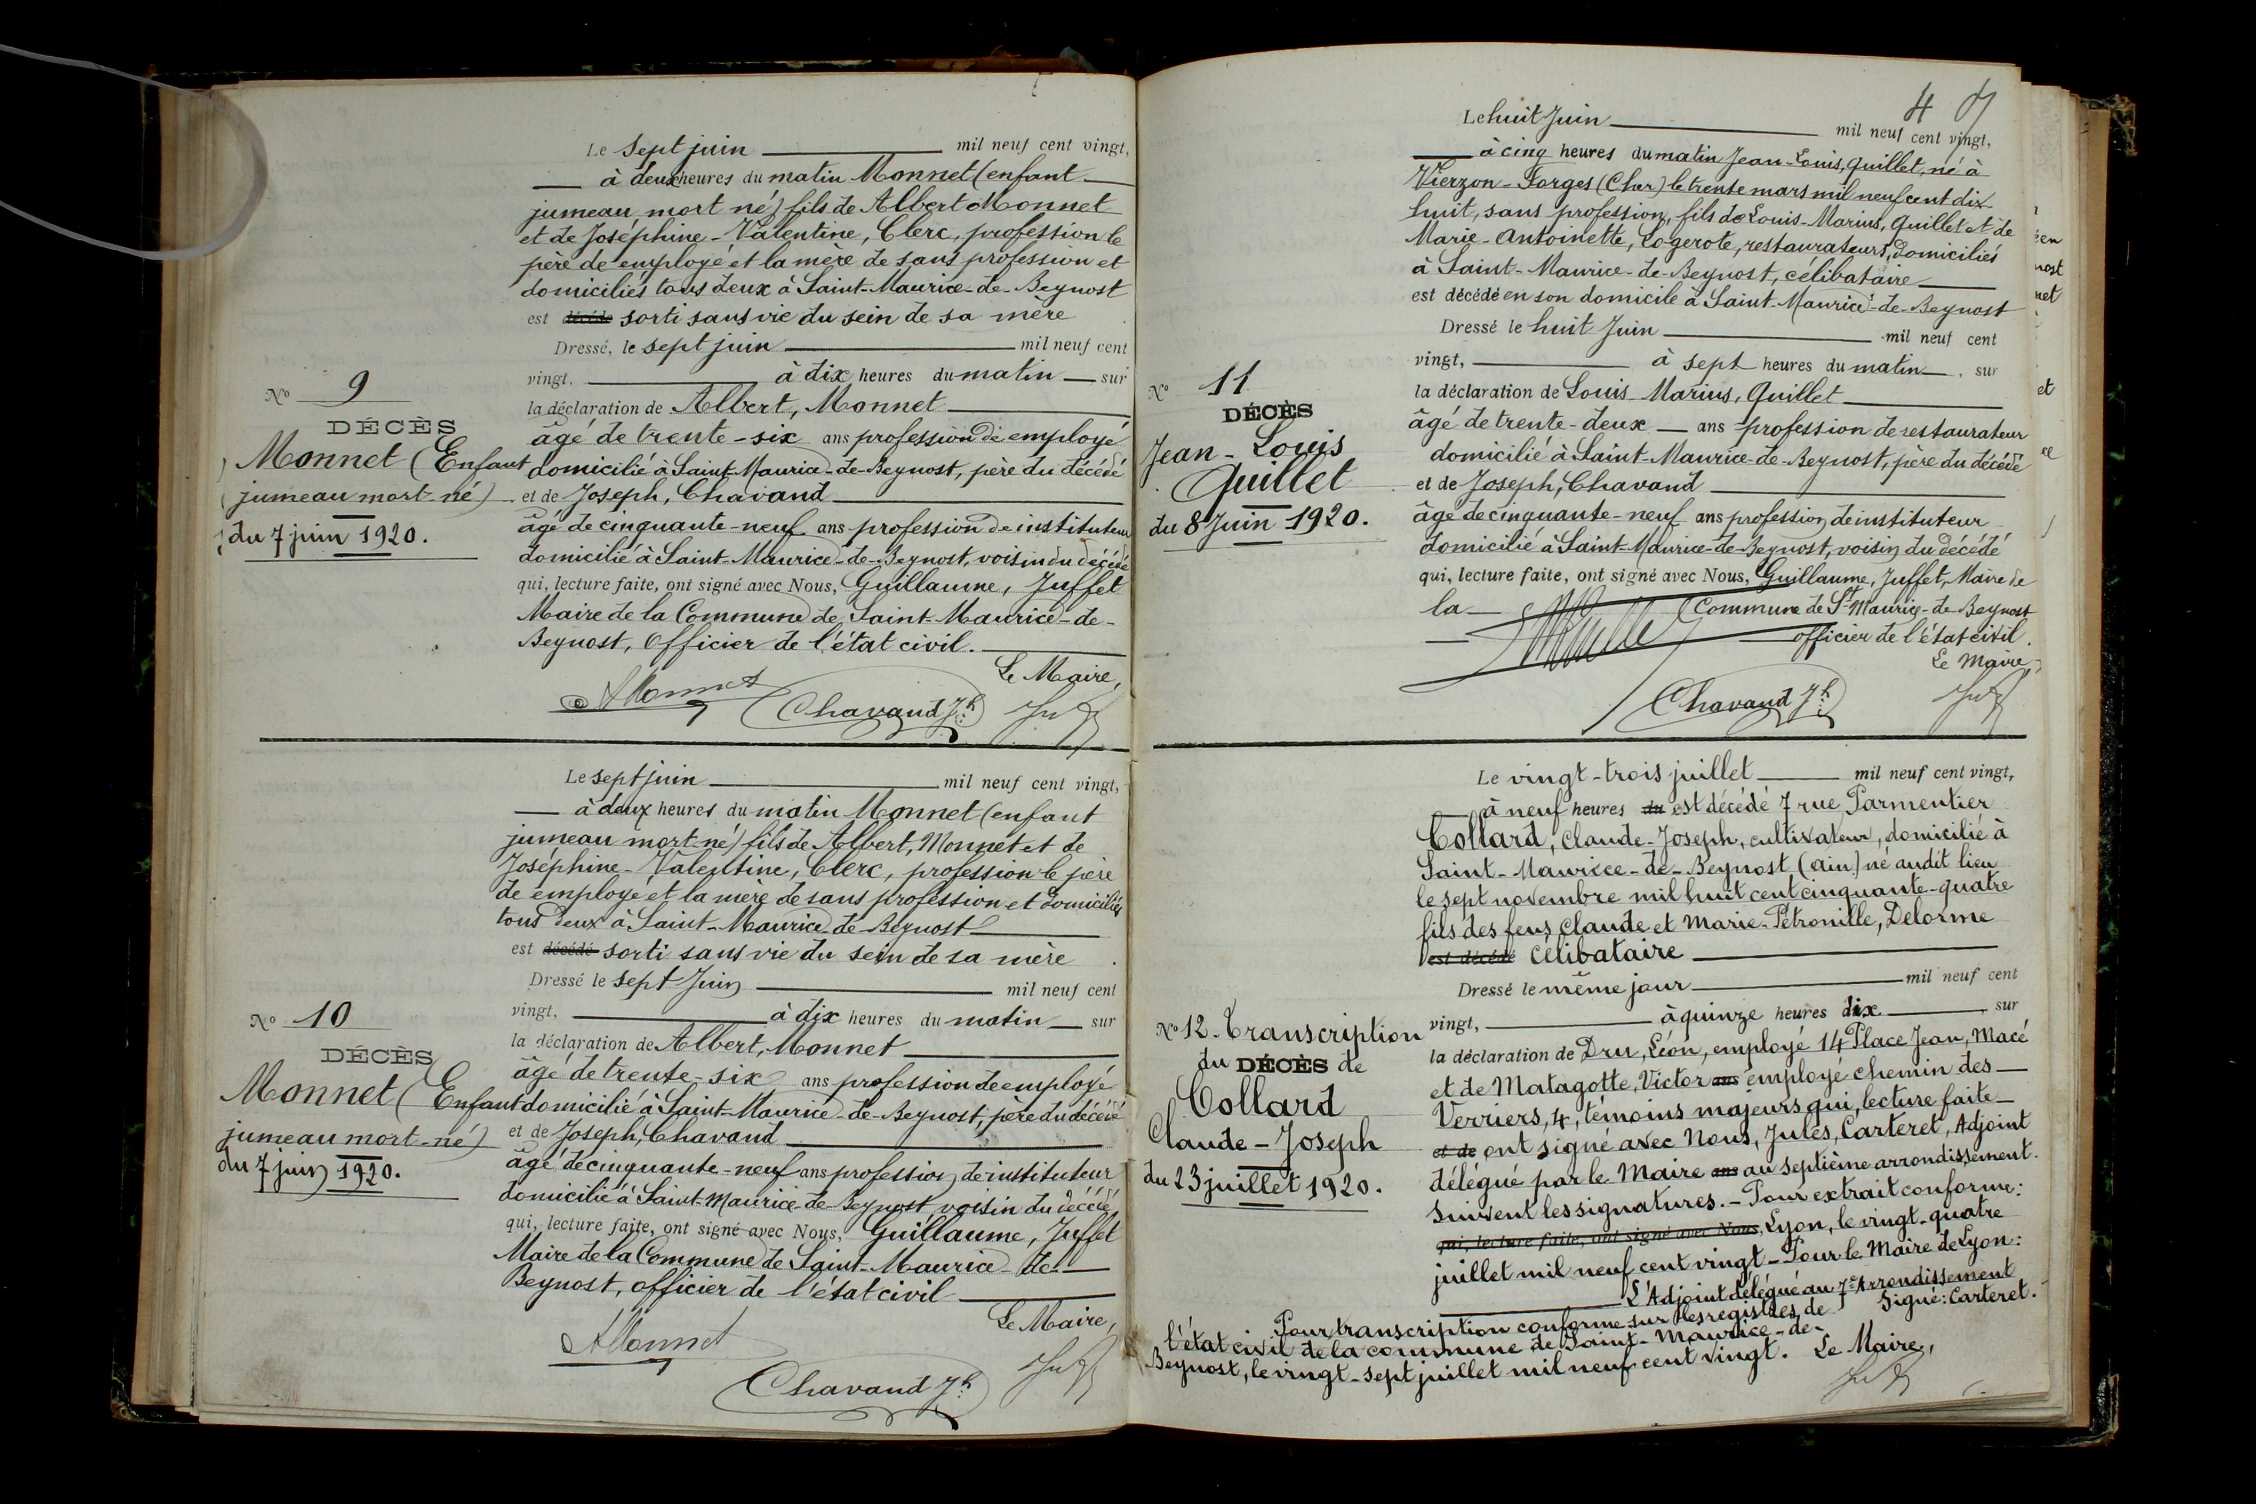 Le sept juin mil neuf cent vingt,
à deux heures du matin Monnet (enfant
jumeau mort né) fils de Albert Monnet
et de Joséphine-Valentine, Clerc, profession le
père de employé et la mère de sans profession et
domiciliés tous deux à Saint-Maurice-de-Beynost
est décédé sorti sans vie du sein de sa mère
Dressé, le sept juin mil neuf cent
vingt, à dix heures du matin sur
la déclaration de Albert, Monnet
âgé de trente-six ans profession de employé
domicilié à Saint-Maurice-de-Beynost, père du décédé
et de Joseph, Chavand
âgé de cinquante-neuf ans profession de instituteur
domicilié à Saint-Maurice-de-Beynost, voisin du décédé
qui, lecture faite, ont signé avec Nous, Guillaume, Juffet
Maire de la Commune de Saint-Maurice-de-
Beynost, officier de l'état civil.
Le Maire,
AMonnet Chavand Jh
No 9
DÉCÈS
Monnet (Enfant
jumeau mort-né)
du 7 juin 1920.
Le sept juin mil neuf cent vingt,
à deux heures du matin Monnet (enfant
jumeau mort-né) fils de Albert, Monnet et de
Joséphine-Valentine, Clerc, profession le père
de employé et la mère de sans profession et domiciliés
tous deux à Saint-Maurice de Beynost
est décédé sorti sans vie du sein de sa mère
Dressé le sept Juin mil neuf cent
vingt, à dix heures du matin sur
la déclaration de Albert, Monnet
âgé de trente-six ans profession de employé
domicilié à Saint-Maurice-de-Beynost, père du décédé
et de Joseph, Chavand
âgé de cinquante-neuf ans profession de instituteur
domicilié à Saint-Maurice-de-Beynost voisin du décédé
qui, lecture faite, ont signé avec Nous, Guillaume, Juffet
Maire de la Commune de Saint-Maurice-de-
Beynost, officier de l'état civil
Le Maire,
AMonnet
Chavand Jh
No 10
DÉCÈS
Monnet (Enfant
jumeau mort-né)
du 7 juin 1920.
4
Le huit Juin mil neuf cent vingt,
à cinq heures du matin Jean-Louis, Quillet, né à
Vierzon-Forges (Cher) le trente mars mil neuf cent dix
huit, sans profession, fils de Louis-Marius, Quillet et de
Marie-Antoinette, Logerote, restaurateurs, domiciliés
à Saint-Maurice-de-Beynost, célibataire
est décédé en son domicile à Saint-Maurice-de-Beynost
Dressé le huit Juin mil neuf cent
vingt, à sept heures du matin, sur
la déclaration de Louis-Marius, Quillet
âgé de trente-deux ans profession de restaurateur
domicilié à Saint-Maurice-de-Beynost, père du décédé
et de Joseph, Chavand
âgé de cinquante-neuf ans profession de instituteur
domicilié à Saint-Maurice-de-Beynost, voisin du décédé
qui, lecture faite, ont signé avec Nous, Guillaume, Juffet, Maire de
la Commune de St Maurice-de-Beynost
officier de l'état civil.
Le Maire,
Chavand Jh
No 11
DÉCÈS
Jean-Louis
Quillet
du 8 Juin 1920.
Le vingt-trois juillet mil neuf cent vingt,
à neuf heures du est décédé 7 rue Parmentier
Collard, Claude-Joseph, cultivateur, domicilié à
Saint-Maurice-de-Beynost (Ain) né audit lieu
le sept novembre mil huit cent cinquante-quatre
fils des feus Claude et Marie-Pétronille, Delorme
est décédé célibataire
Dressé le même jour mil neuf cent
vingt, à quinze heures dix, sur
la déclaration de Dru, Léon, employé 14 Place Jean, Macé
et de Matagotte, Victor ans employé chemin des
Verriers, 4, témoins majeurs qui, lecture faite
et de ont signé avec Nous, Jules, Carteret, Adjoint
délégué par le Maire ans au septième arrondissement.
Suivent les signatures. - Pour extrait conforme:
qui, lecture faite, ont signé avec Nous, Lyon, le vingt-quatre
juillet mil neuf cent vingt - Pour le Maire de Lyon:
L'Adjoint délégué au 7e Arrondissement
Signé: Carteret.
Pour transcription conforme sur les registres de
l'état civil de la commune de Saint-Maurice-de-
Beynost, le vingt-sept juillet mil neuf cent vingt. Le Maire,
No 12. Transcription
du DÉCÈS de
Collard
Claude-Joseph
du 23 juillet 1920.